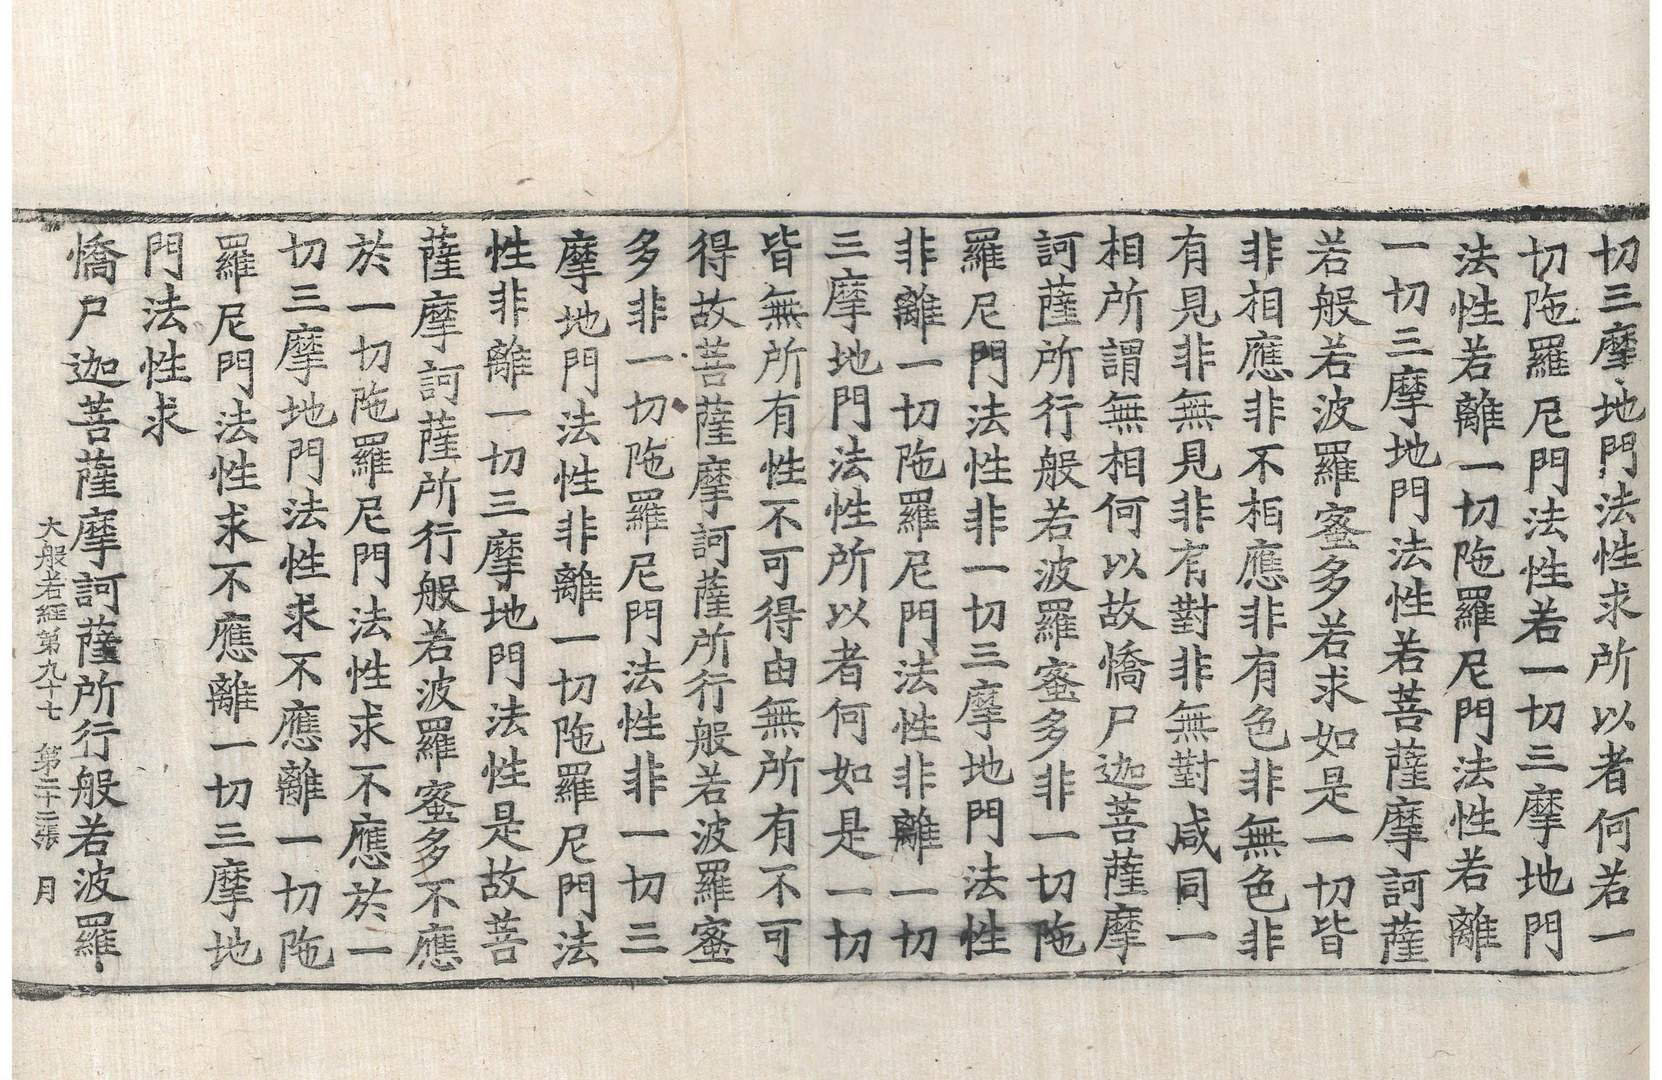 切三摩地門法性求所以者何若一
切陁羅尼門法性若一切三摩地門
法性若離一切陁羅尼門法性若離
一切三摩地門法性若菩薩摩訶薩
若般若波羅蜜多若求如是一切皆
非相應非不相應非有色非無色非
有見非無見非有對非無對咸同一
相所謂無相何以故憍尸迦菩薩摩
訶薩所行般若波羅蜜多非一切陁
羅尼門法性非一切三摩地門法性
非離一切陁羅尼門法性非離一切
三摩地門法性所以者何如是一切
皆無所有性不可得由無所有不可
得故菩薩摩訶薩所行般若波羅蜜
多非一切陁羅尼門法性非一切三
摩地門法性非離一切陁羅尼門法
性非離一切三摩地門法性是故菩
薩摩訶薩所行般若波羅蜜多不應
於一切陁羅尼門法性求不應於一
切三摩地門法性求不應離一切陁
羅尼門法性求不應離一切三摩地
門法性求
憍尸迦菩薩摩訶薩所行般若波羅
大般若經第九十七 第二十二張 月